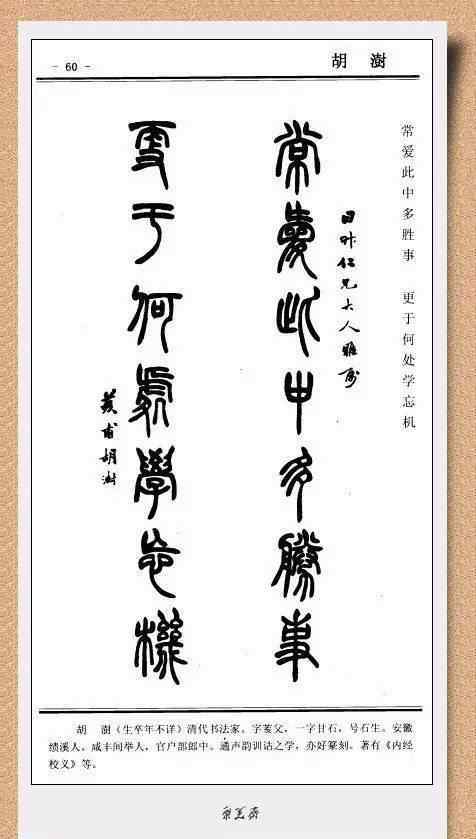 - 60 -
胡 澍
常爱此中多胜事 更于何处学忘机
常愛此中多勝事
仁兄大人雅屬
更于何處學忘機
荄甫胡澍
胡 澍（生卒年不详）清代书法家。字荄父，一字甘石，号石生。安徽
绩溪人。咸丰间举人，官户部郎中。通声韵训诂之学，亦好篆刻。著有《内经
校义》等。